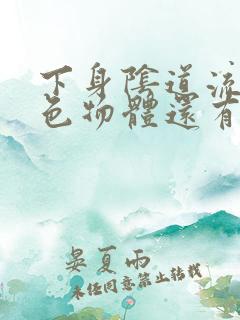 下身陰道流
色物體還有
晏夏雨
未经同意禁止转载